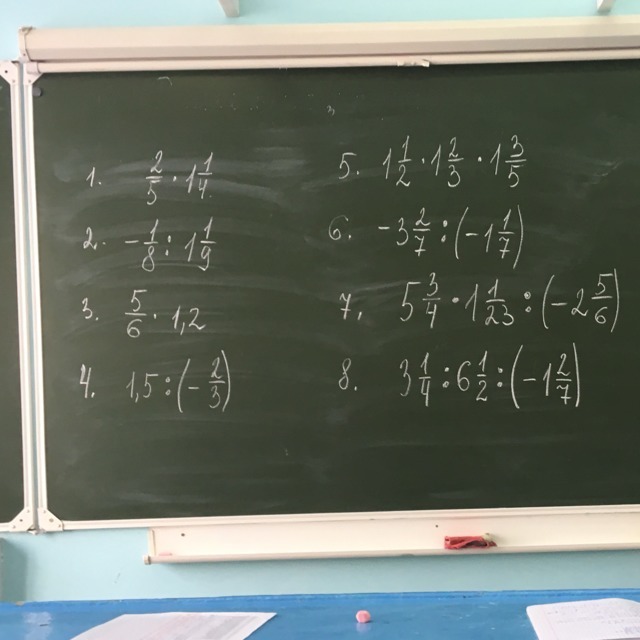 1. 2/5 · 1 1/4
2. - 1/8 : 1 1/9
3. 5/6 · 1,2
4. 1,5 : (- 2/3)
5. 1 1/2 · 1 2/3 · 1 3/5
6. -3 2/7 : (-1 1/7)
7. 5 3/4 · 1 1/23 : (-2 5/6)
8. 3 1/4 : 6 1/2 : (-1 2/7)